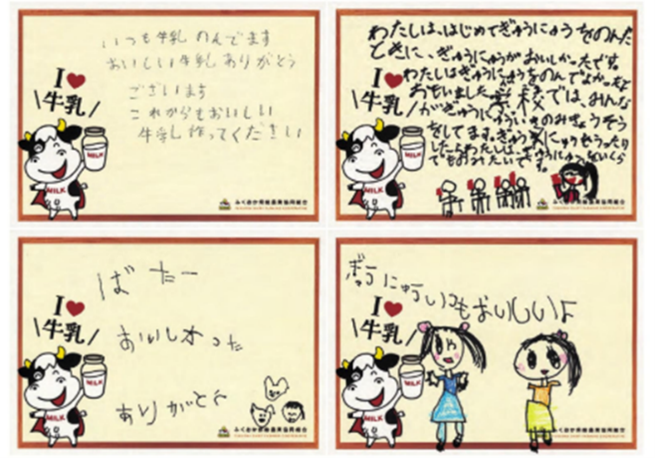 いつも牛乳のんでます
おいしい牛乳ありがとう
ございます
これからもおいしい
牛乳作ってください
I
牛乳
MILK
MILK
ふくおか県酪農業協同組合
わたしは、はじめてぎゅうにゅうをのんだ
ときに、ぎゅうにゅうがおいしかったです。
わたしはぎゅうにゅうをのんでよかったと
おもいました。学校では、みんな
がぎゅうにゅういっきのみきょうそう
をしてます。ぎゅうにゅうもらったり
したらわたしは、ぎゅうにゅうをいくら
でものみたいです。
I
牛乳
MILK
MILK
ふくおか県酪農業協同組合
ばたー
おいしかった
ありがとう
I
牛乳
MILK
MILK
ふくおか県酪農業協同組合
ぎゅうにゅういつもおいしいよ
I
牛乳
MILK
ふくおか県酪農業協同組合